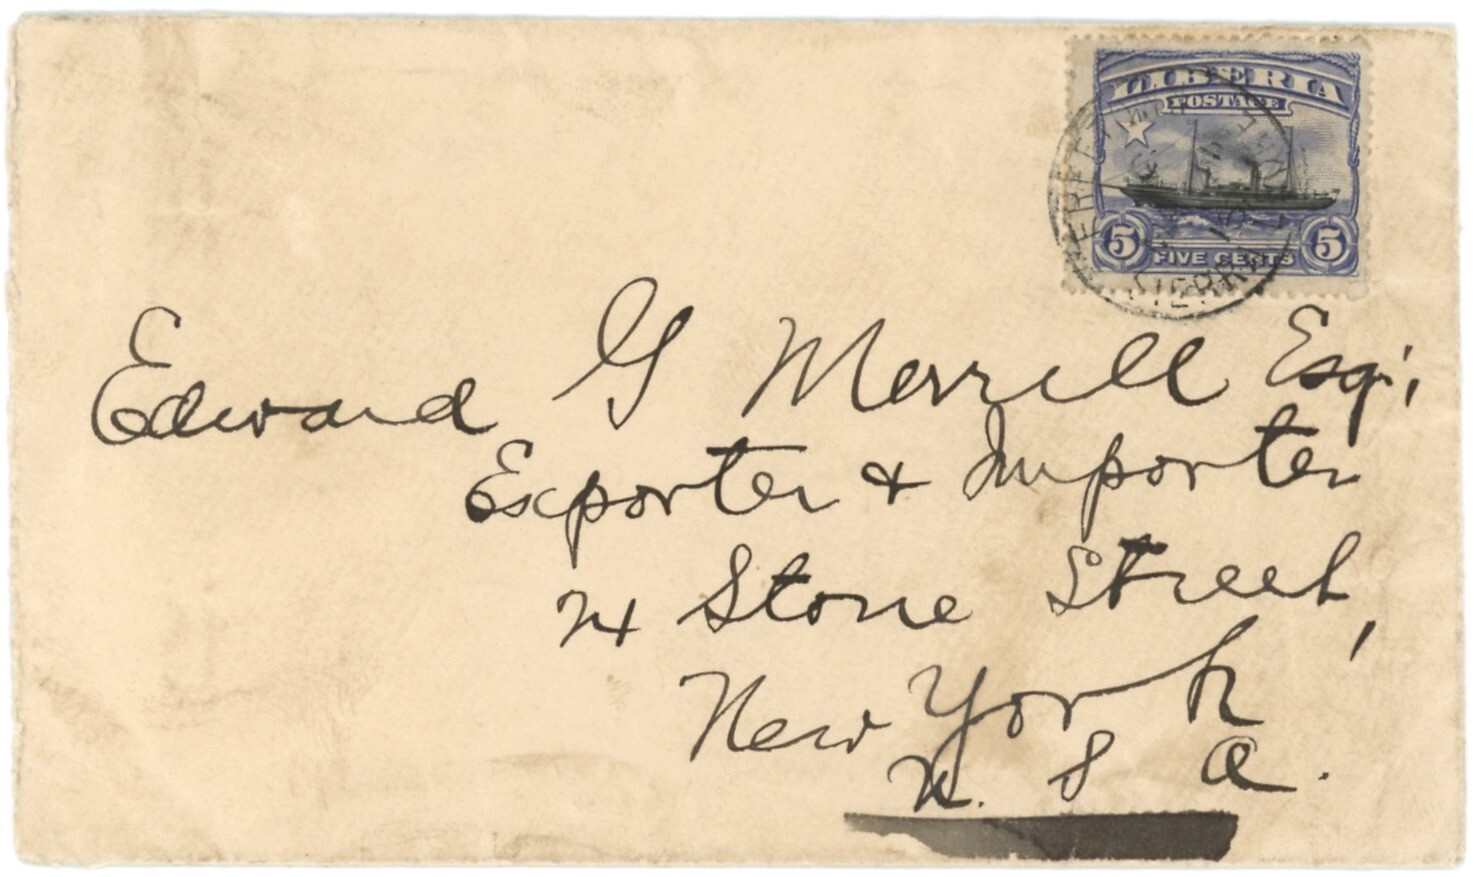 LIBERIA
POSTAGE
5 FIVE CENTS 5
FREETOWN
SIERRA
Edward G Merrill Esq.,
Exporter & Importer
24 Stone Street,
New York
U. S A.